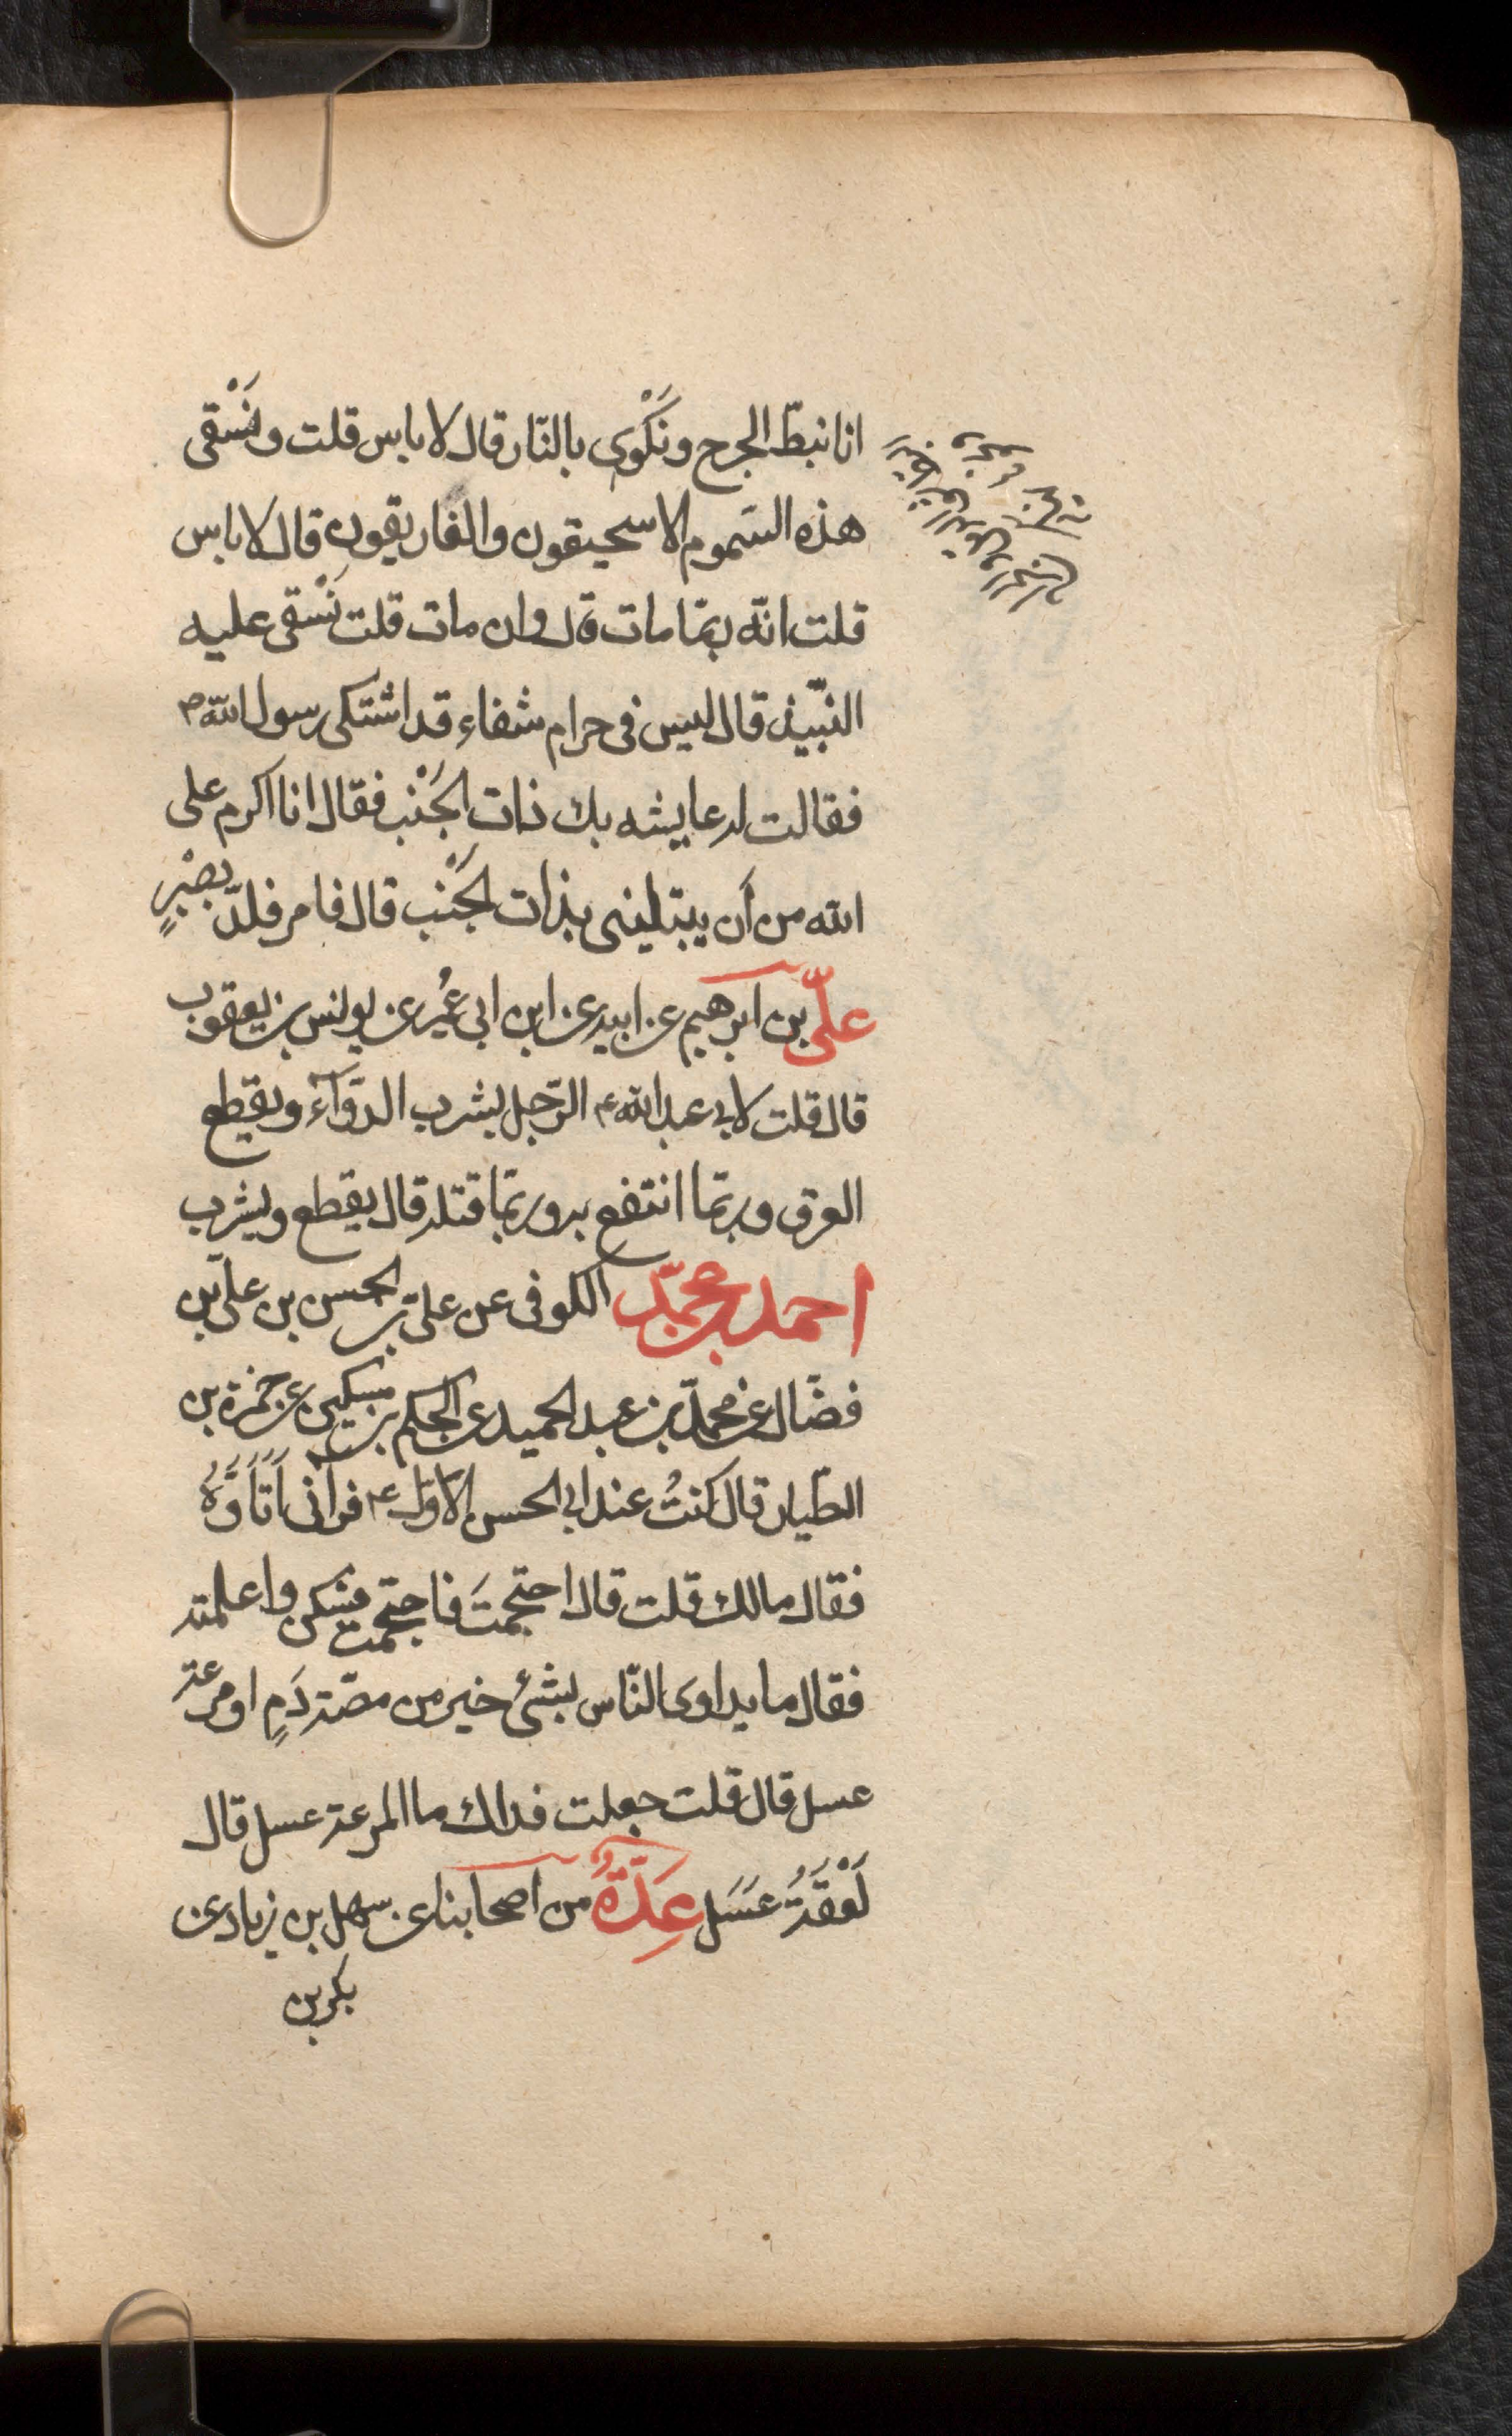 انا نبطّ الجرح ونَكْوى بالنّار قال لا باس قلت ونَسْقى
هذه السّموم الاسحيقون والغاريقون قال لا باس
قلت انّه ربمّا مات قال وان مات قلت نَسْقى عليه
النّبيذ قال ليس فى حرام شفاء قد اشتكى رسول اللّه ص
فقالت له عايشه بك ذات الجَنْب فقال انا اكرم على
الله من أن يبتلينى بذات الجَنْب قال فامر فلدّ بصْبرٍ
علىّ بن ابرهيم عن ابيه عن ابن ابى عُمير عن يونس بن يعقوب
قال قلت لابى عبد اللّه ع الرّجل يشرب الدّوآء ويقطع
العرق وربمّا انتفع به وربمّا قتله قال يقطع ويشرب
احمد بن محمّد الكوفى عن علىّ بن الحسن بن علىّ بن
فضّال عن محمّد بن عبد الحميد عن الحكم بن مسكين عن حمزة بن
الطّيار قال كنتُ عند ابى الحسن الاوّل ع فرآنى اَتَأَوَّهُ
فقال مالك قلت قال احتجمتَ فاحتجمت فسكن واعلمته
فقال ما يداوى النّاس بشئ خير من مصّة دَمٍ او مرعة
عسل قال قلت جعلت فداك ما المرعة عسل قال
لَعْقَةُ عَسَل عِدَّةٌ من اصحابنا عن سهل بن زياد عن
بكر بن